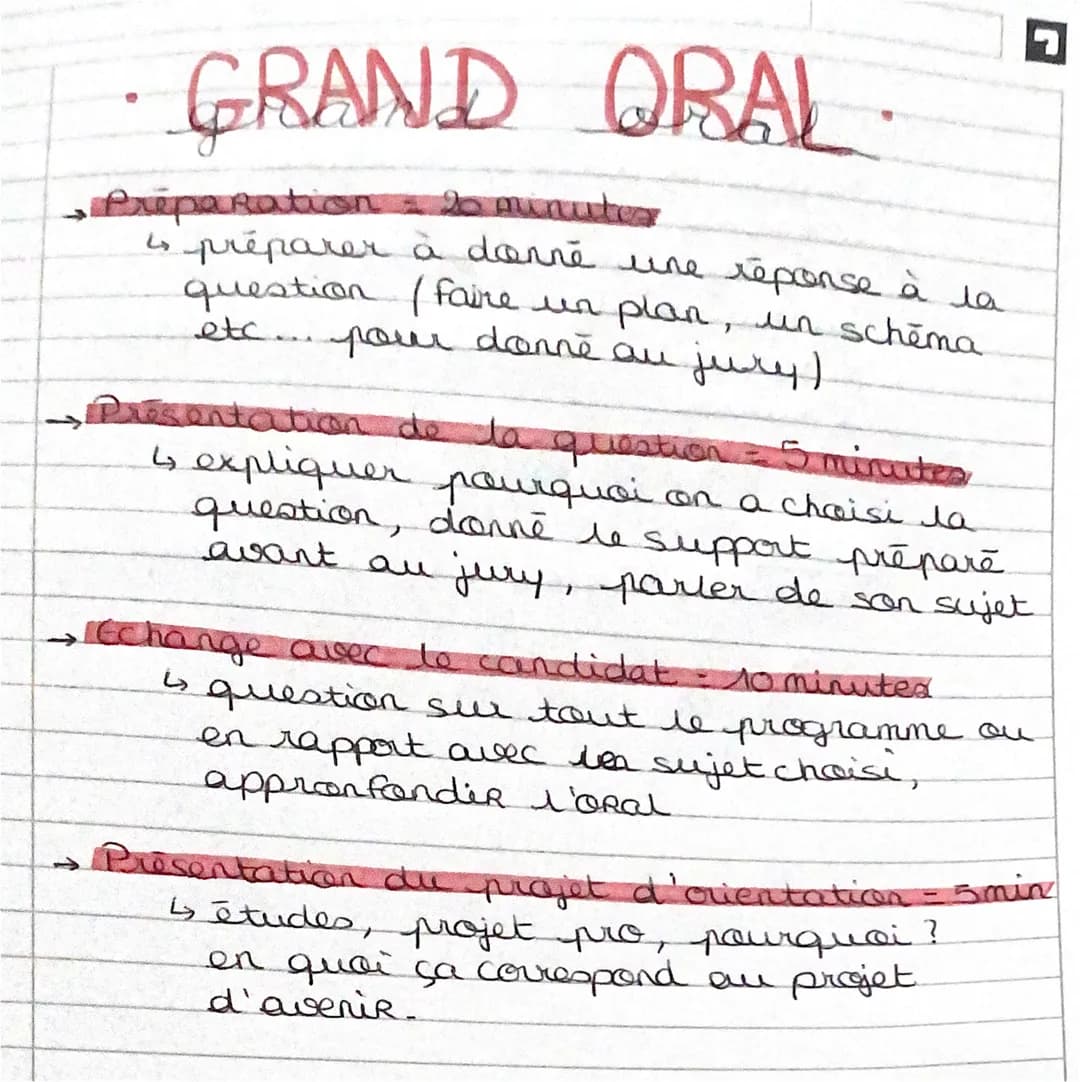 . GRAND ORAL .
grand oral
→ Préparation = 20 minutes
↳ préparer à donné une réponse à la
question (faire un plan, un schéma
etc... pour donné au jury)
→ Présentation de la question = 5 minutes
↳ expliquer pourquoi on a choisi la
question, donné le support préparé
avant au jury, parler de son sujet
→ Echange avec le candidat = 10 minutes
↳ question sur tout le programme ou
en rapport avec les sujet choisi,
appronfondir l'oral
→ Présentation du projet d'orientation = 5 min
↳ études, projet pro, pourquoi ?
en quoi ça correspond au projet
d'avenir.